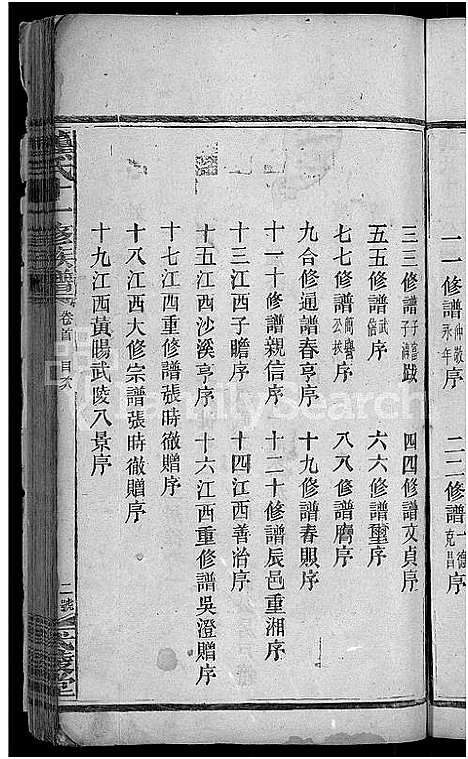 一一修譜仲敬永年　二二修譜一德克昌
三三修譜子　跋　四四修譜文貞序
五五修譜武　序　六六修譜璽序
七七修譜簡　公　序　八八修譜膺序
九合修通譜春亨序　十九修譜春賜序
十一十修譜親信序　十二十修譜辰邑重湘序
十三江西子瞻序　十四江西善治序
十五江西沙溪亨序　十六江西重修譜吳澄贈序
十七江西重修譜張時徹贈序
十八江西大修宗譜張時徹贈序
十九江西黃暘武陵八景序
氏十一修族譜　卷首　目次　二
FamilySearch